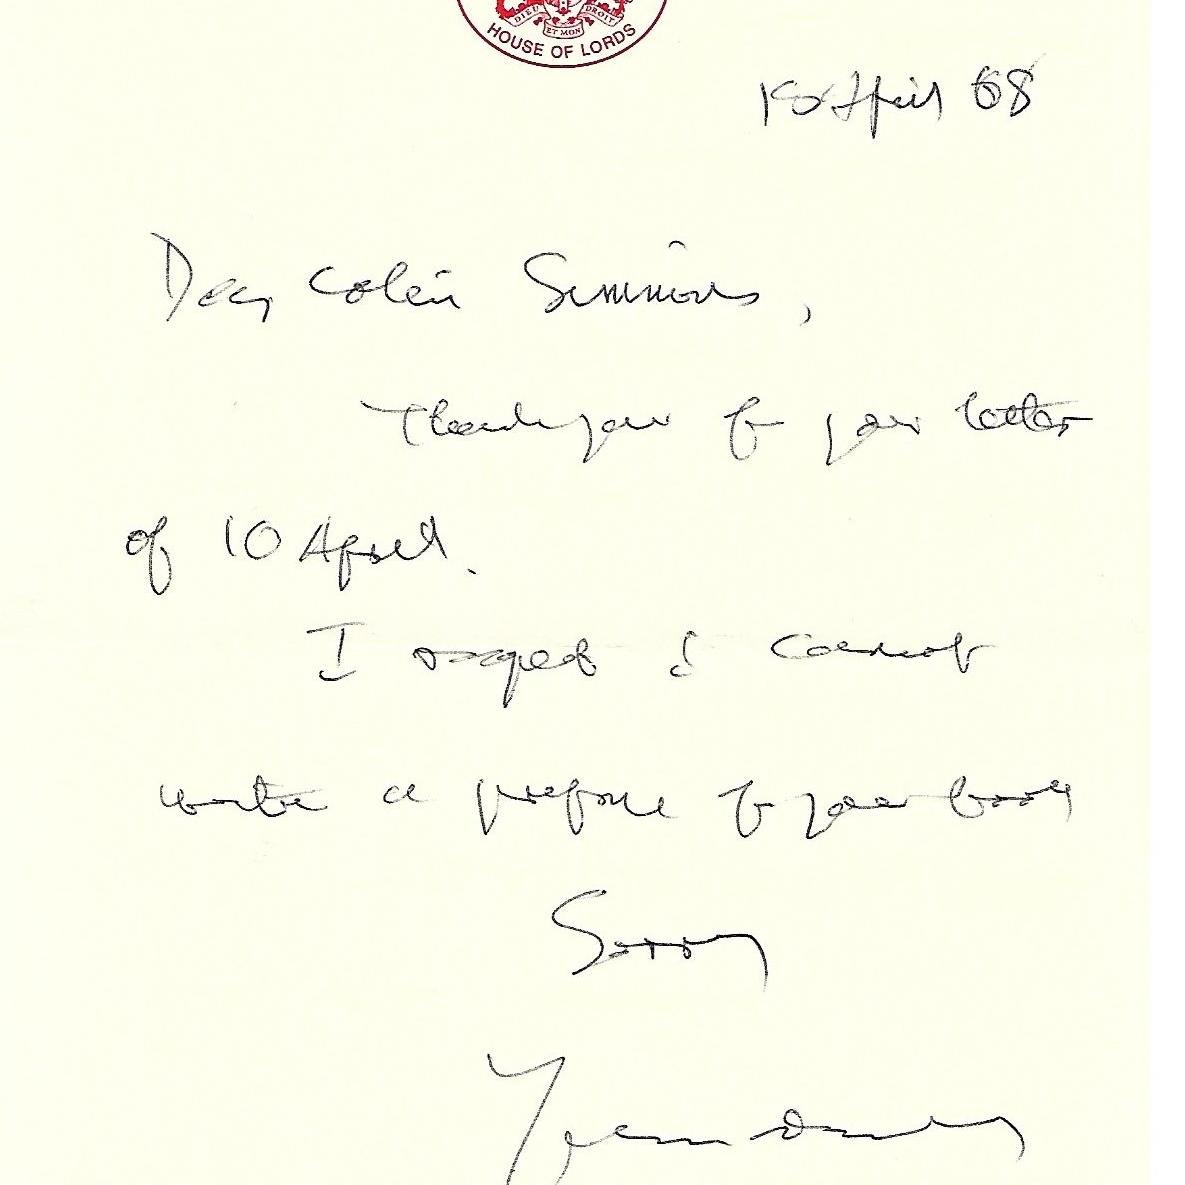 DIEU ET MON DROIT
HOUSE OF LORDS
18 April 68
Dear Colin Simmons,
Thank you for your letter
of 10 April.
I regret I cannot
write a preface for your book
Sorry